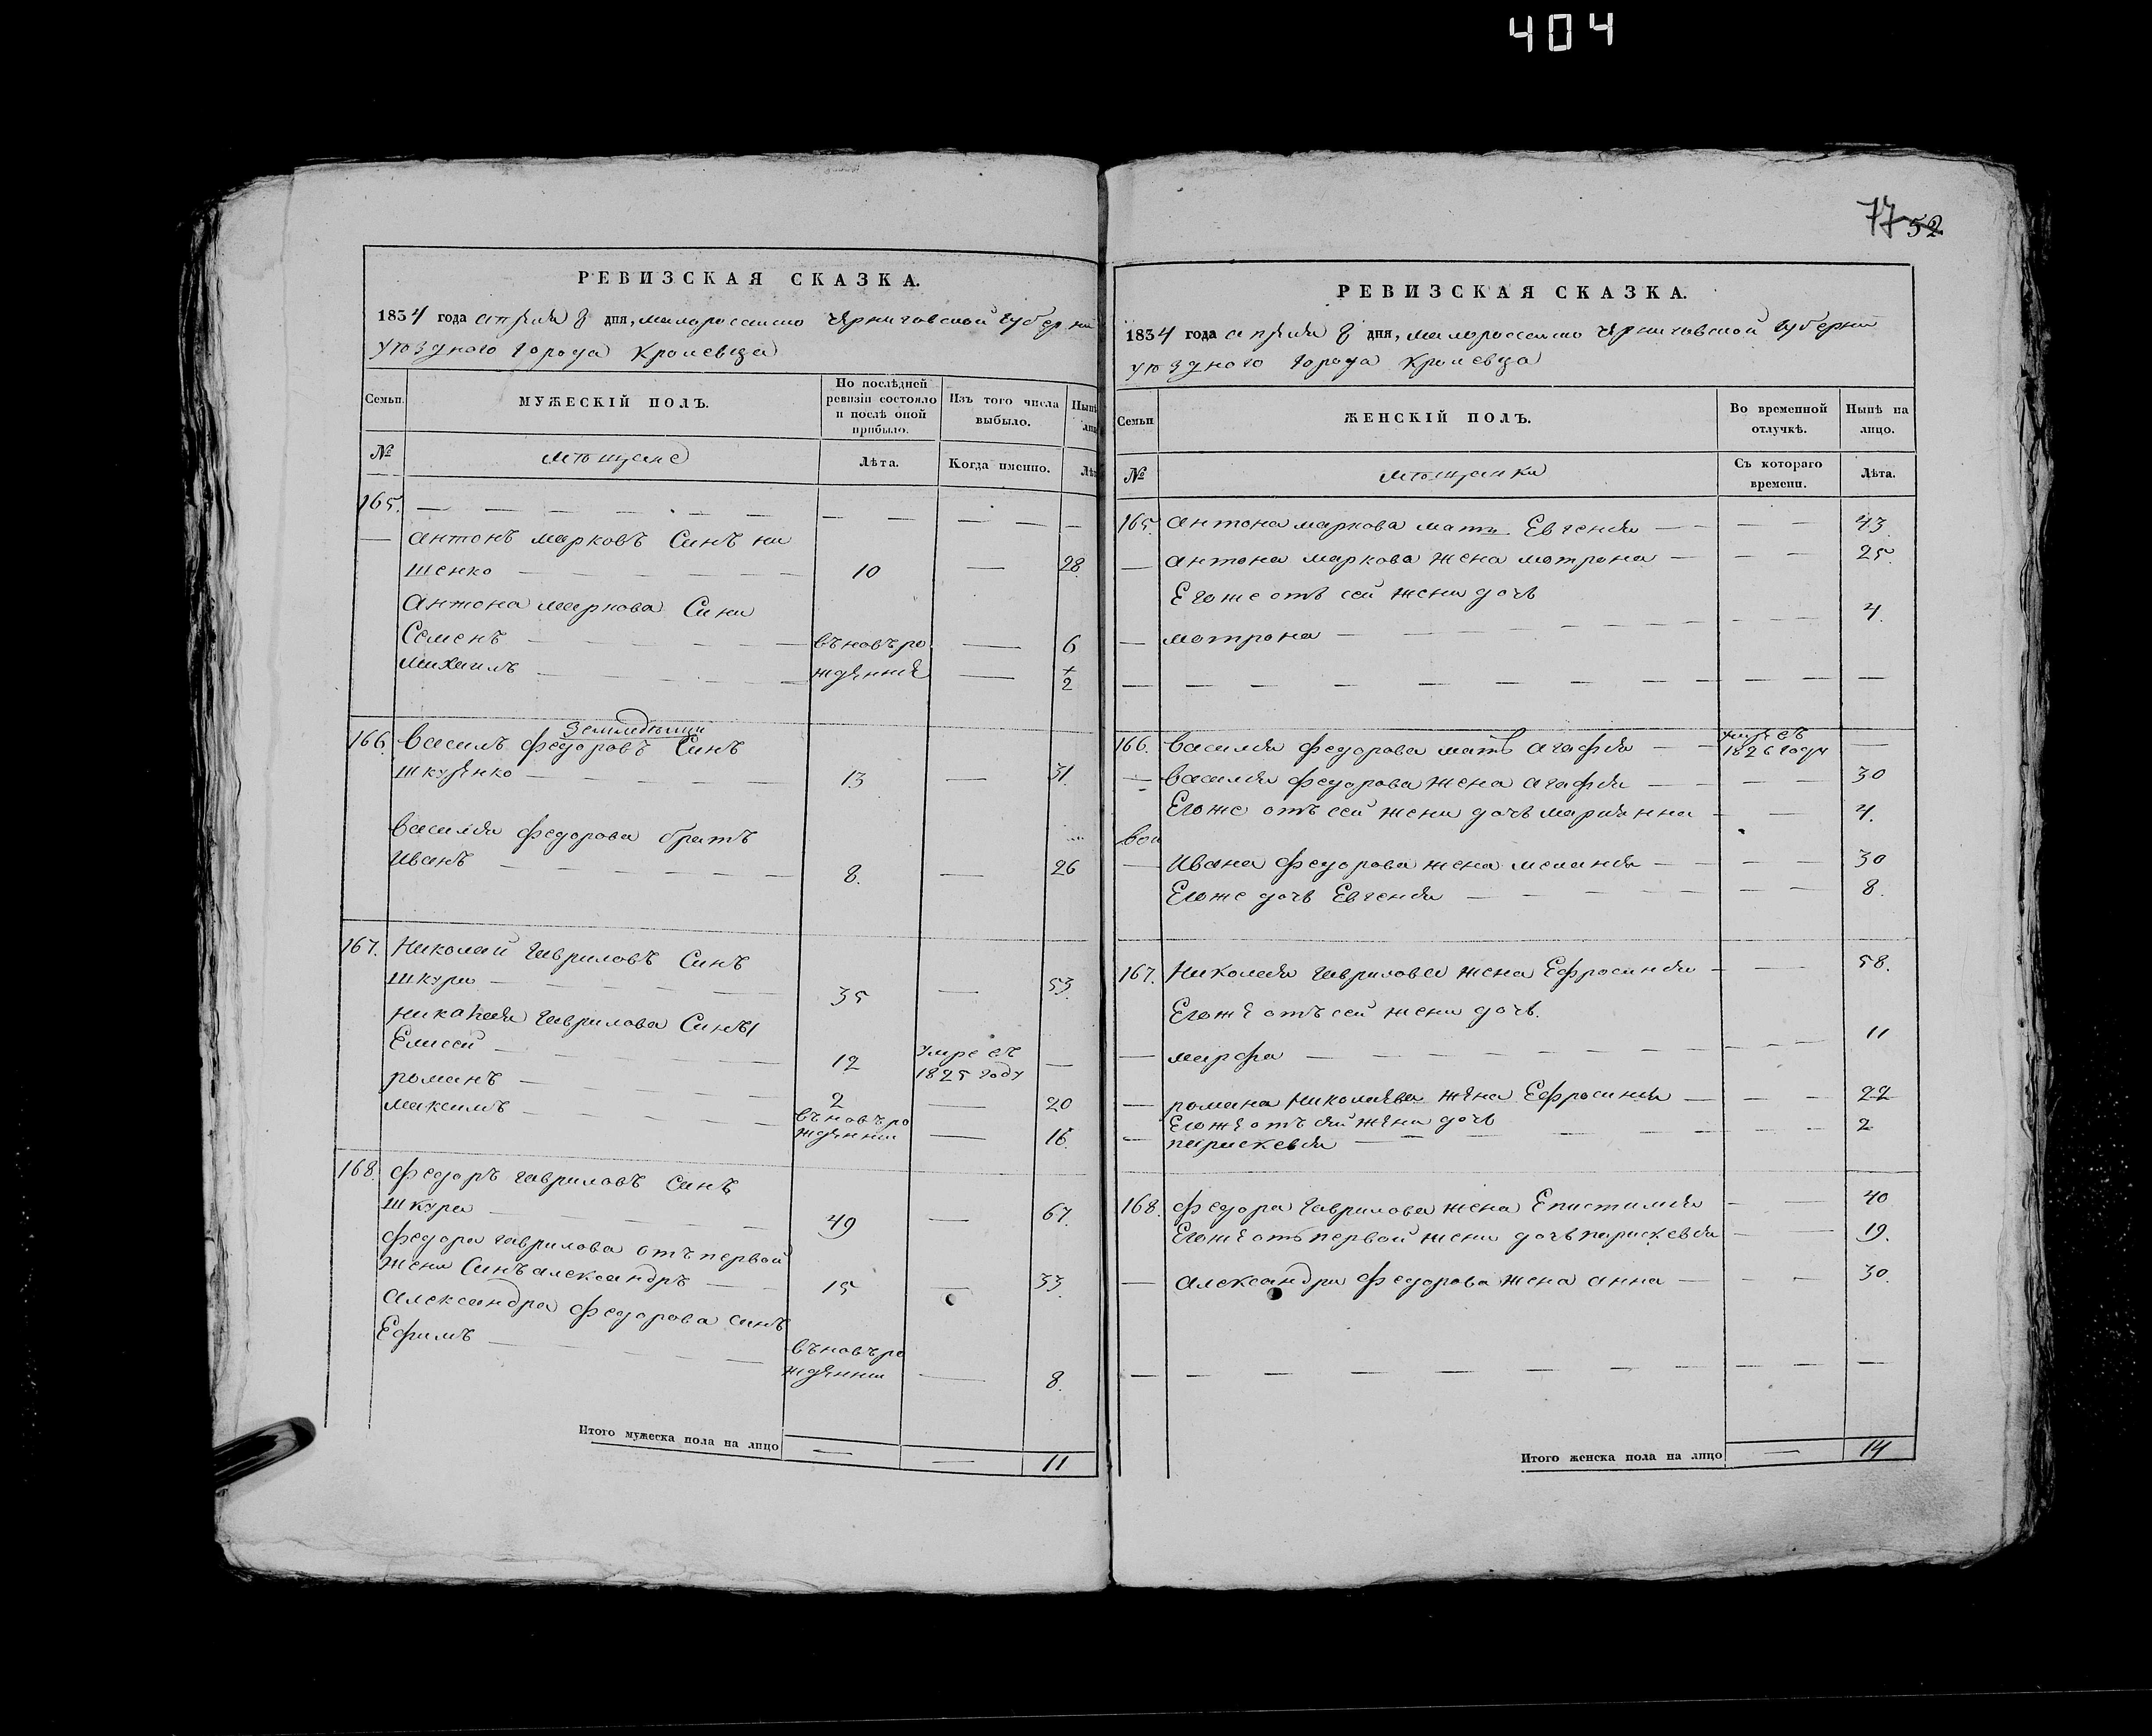 404
77 52
РЕВИЗСКАЯ СКАЗКА.
1834 года апреля 8 дня, малороссийско Черниговской губерни
уѣздного города Кролевца
Семьи.
МУЖЕСКІЙ ПОЛЪ.
По послѣдней ревизіи состояло и послѣ оной прибыло.
Изъ того числа выбыло.
Нынѣ
№
мѣщане
Лѣта.
Когда именно.
165.
Антонъ Марковъ Синъ
шенко 10 28
Антона Маркова Сини
Семенъ въновъро 6
Михаилъ жденніе 2
Землиделци
166. Василъ Федоровъ Синъ
Шкуренко 13 31.
Василія Федорова братъ
Иванъ 8. 26
167. Николай Гавриловъ Синъ
Шкура 35 53.
Николая Гаврилова Сины
Елисей 12 умре въ 1825 году
Романъ 2 20
Максимъ въновъро жденни 16
168. Федоръ Гавриловъ Синъ
Шкура 49 67.
Федора Гаврилова отъ первой
жени Синъ Александръ 15 33.
Александра Федорова синъ
Ефимъ въновъро
жденни 8.
Итого мужеска пола на лицо 11
РЕВИЗСКАЯ СКАЗКА.
1834 года апреля 8 дня, малороссийско Черниговской губерни
уѣздного города Кролевца
Семьи
ЖЕНСКІЙ ПОЛЪ.
Во временной отлучкѣ.
Нынѣ на лицо.
№
мѣщанки
Съ котораго времени.
Лѣта.
165. Антона Маркова мать Евгенія 43
Антона Маркова жена Мотрона 25
Егоже отъ сей жени дочь
Мотрона 4.
166. Василія Федорова мать Агафія умре въ 1826 году
Василія Федорова жена Агафія 30
Егоже отъ сей жени дочь Маріанна 4.
Ивана Федорова жена Меланія 30
Егоже дочь Евгенія 8.
167. Николая Гаврилова жена Ефросинія 58.
Егоже отъ сей жени дочь.
Марфа 11
Романа Николаева жена Ефросинія 22
Егоже отъ сей жени дочь
Параскевія 2
168. Федора Гаврилова жена Епистимія 40
Егоже отъ первой жени дочь Параскевія 19.
Александра Федорова жена Анна 30.
Итого женска пола на лицо 14